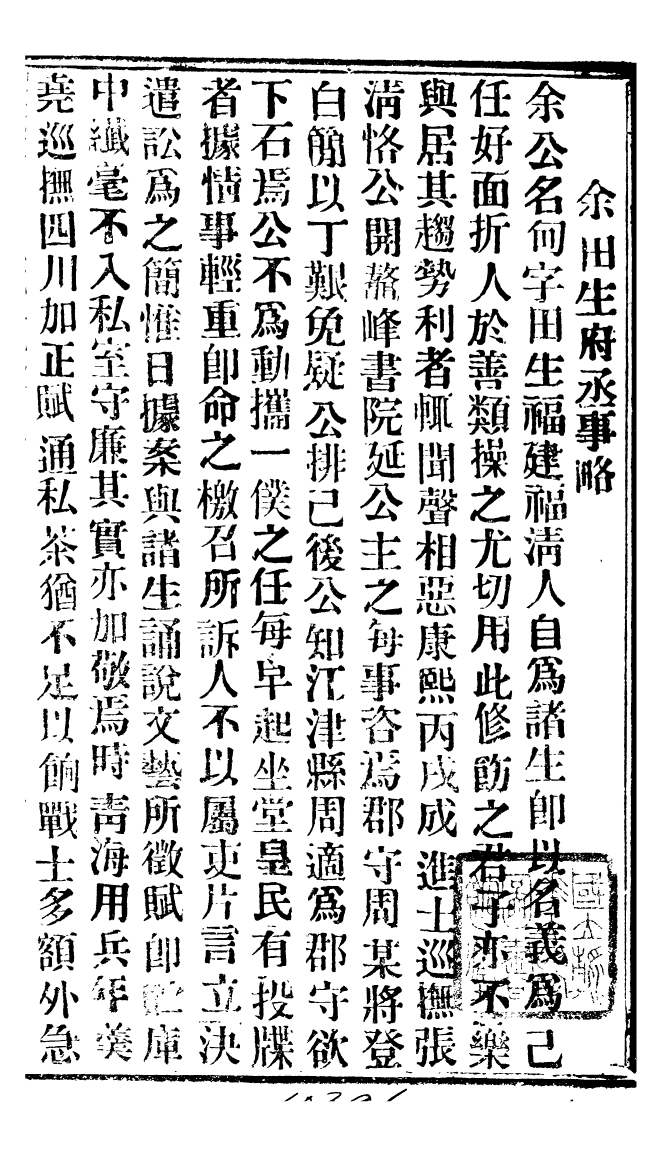 余田生府丞事略
余公名甸字田生福建福淸人自爲諸生卽以名義爲己
任好面折人於善類操之尤切用此修飭之君子亦不樂
與居其趨勢利者輒聞聲相惡康熙丙戌成進士巡撫張
淸恪公開鼇峰書院延公主之每事咨焉郡守周某將登
白簡以丁艱免疑公排己後公知江津縣周適爲郡守欲
下石焉公不爲動攜一僕之任每早起坐堂皇民有投牒
者據情事輕重卽命之檄召所訴人不以屬吏片言立決
遣訟爲之簡惟日據案與諸生誦說文藝所徵賦卽貯庫
中纖毫不入私室守廉其實亦加敬焉時靑海用兵年羹
堯巡撫四川加正賦通私茶猶不足以餉戰士多額外急